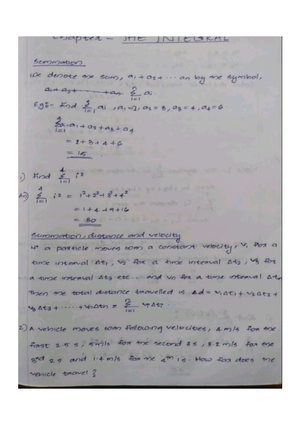 Chapter - THE INTEGRAL
Summation
We denote the sum, a1 + a2 + ... an by the symbol,
a1 + a2 + ... + an Σ ai
i=1
Eg:- Find Σ ai, a1 = 2, a2 = 3, a3 = 4, a4 = 6
i=1
Σ a1 + a2 + a3 + a4
i=1
= 2 + 3 + 4 + 6
= 15
1) Find Σ i²
A) Σ i² = 1² + 2² + 3² + 4²
= 1 + 4 + 9 + 16
= 30
Summation, distance and velocity
If a particle moves with a constant velocity, v1 for a
time interval Δt1, v2 for a time interval Δt2, v3 for
a time interval Δt3 etc... and vn for a time interval Δtn
Then the total distance travelled is Δd = v1Δt1 + v2Δt2 +
v3Δt3 + ... + vnΔtn = Σ viΔti
i=1
2) A vehicle moves with following velocities, 2 m/s for the
first 2.5 s, m/s for the second 3 s, 3.2 m/s for the
3rd 2 s and 1.4 m/s for the 4th 1 s. How far does the
vehicle travel?